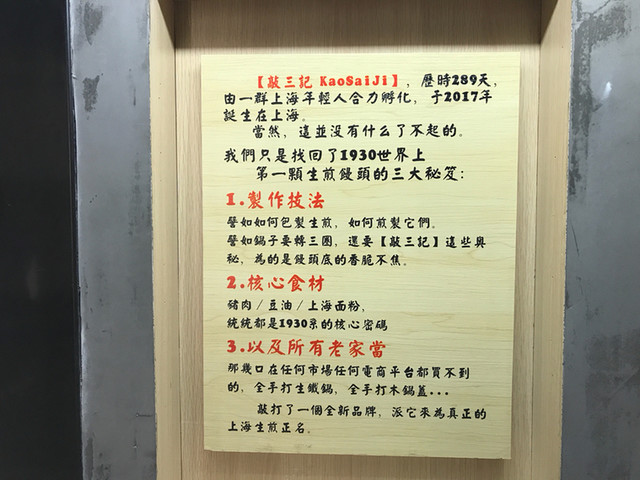 【敲三記 KaoSaiJi】，歷時289天，
由一群上海年輕人合力孵化，于2017年
誕生在上海。
當然，這並沒有什么了不起的。
我們只是找回了1930世界上
第一顆生煎饅頭的三大秘笈：
1.製作技法
譬如如何包製生煎，如何煎製它們。
譬如鍋子要轉三圈，還要【敲三記】這些奧
秘，為的是饅頭底的香脆不焦。
2.核心食材
豬肉／豆油／上海面粉，
統統都是1930系的核心密碼
3.以及所有老家當
那幾口在任何市場任何電商平台都買不到
的，全手打生鐵鍋，全手打木鍋蓋...
敲打了一個全新品牌，派它來為真正的
上海生煎正名。